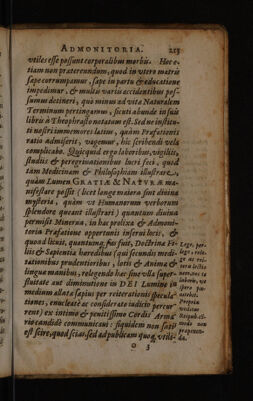 ADMONITORIA. 213
vtiles esse possunt corporalibus morbis. Hoc e-
tiam non prætereundum, quod in vtero matris
sæpe corrumpamur, sæpe in partu & educatione
impedimur, & multis variis accidentibus pos-
sumus detineri, quò minus ad vitæ Naturalem
Terminum pertingamus, sicuti abunde in suis
libris à Theophrasto notatum est. Sed ne institu-
ti nostri immemores latius, quàm Præfationis
ratio admiserit, vagemur, hic scribendi vela
complicabo. Quicquid ergo laboribus, vigiliis,
studiis & peregrinationibus lucri feci, quod
tam Medicinam & Philosophiam illustrare,
quàm Lumen GRATIÆ & NATVRÆ ma-
nifestare possit (licet longe maiora sint diuina
mysteria, quàm vt Humanorum verborum
splendore queant illustrari) quantum diuina
permisit Minerva, in hac prolixa & Admoni-
toria Præfatione opportunis inserui locis, &
quod licuit, quantumq; fas fuit, Doctrinæ Fi-
liis & Sapientiæ hæredibus (qui secundis medi-
tationibus prudentioribus, lotis & Animâ &
linguâ manibus, relegendo hæc sine vlla super-
stuitate aut diminutione in DEI Lumine in
medium allata sæpius per reiterationis specula-
tiones, enucleatè ac considerate iudicio percur-
rent) ex intimo & penitissimo Cordis Arma-
rio candidè communicaui: siquidem non satis
est scire, quod scias, sed ad publicam quoq; vtili-
O 3
Lege, per-
lege, rele-
ge, ac rei-
tera lectio
nem, ne to
laboris, ve
opera pœ-
niteat.
Propria
vtilitas